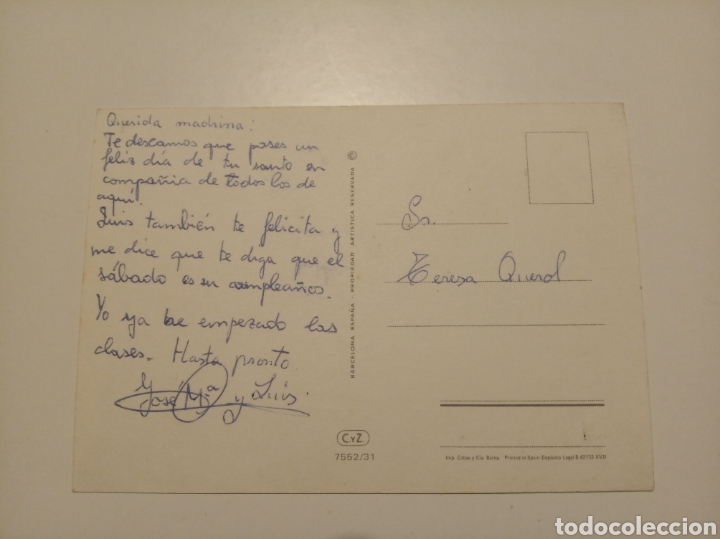 Querida madrina:
Te deseamos que pases un
feliz día de tu santo en
compañía de todos los de
aquí.
Luis también te felicita y
me dice que te diga que el
sábado es su cumpleaños.
Yo ya he empezado las
clases. Hasta pronto.
José Mª y Luis
BARCELONA ESPAÑA - PROPIEDAD ARTISTICA RESERVADA
Sr.
Teresa Querol
CyZ
7552/31
Printed in Spain Depósito Legal B.
todocoleccion
todocoleccion.net